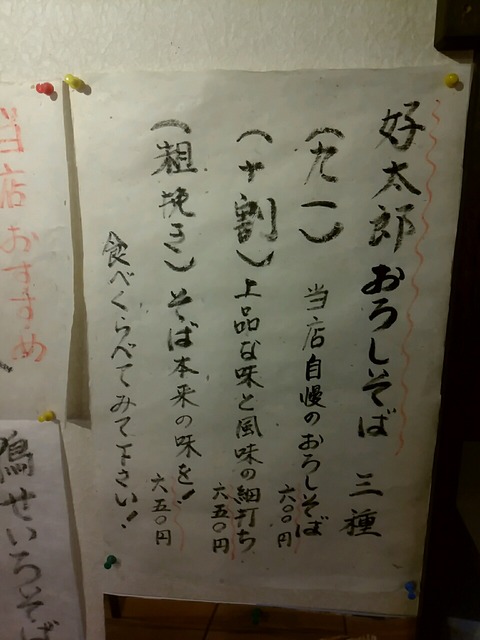 好太郎おろしそば 三種
(九一) 当店自慢のおろしそば 六〇〇円
(十割) 上品な味と風味の細打ち 六五〇円
(粗挽き) そば本来の味を! 六五〇円
食べくらべてみて下さい!
当店おすすめ
鴨せいろそば